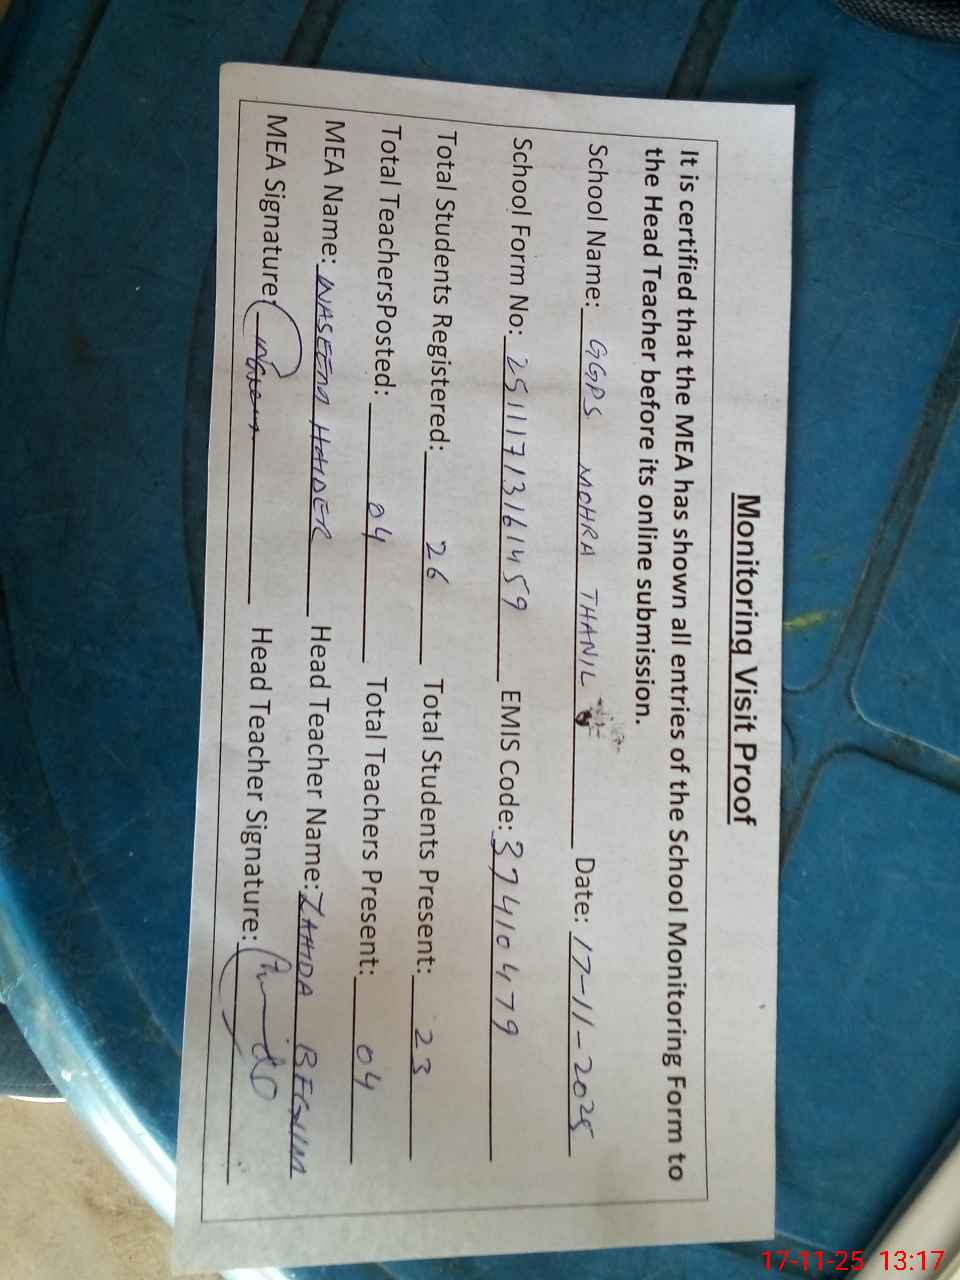 Monitoring Visit Proof
It is certified that the MEA has shown all entries of the School Monitoring Form to
the Head Teacher before its online submission.
School Name: GGPS MOHRA THANIL Date: 17-11-2025
School Form No: 25111713161459 EMIS Code: 37410479
Total Students Registered: 26 Total Students Present: 23
Total TeachersPosted: 04 Total Teachers Present: 04
MEA Name: WASEEM HAIDER Head Teacher Name: ZAHIDA BEGUM
MEA Signature: Head Teacher Signature:
17-11-25 13:17